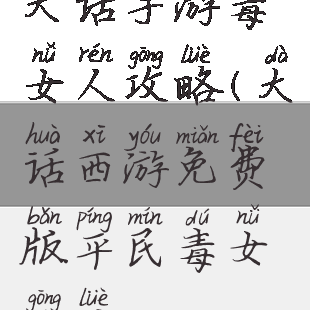 大话手游毒
nǚ rén gōng lüè dà
女人攻略(大
huà xī yóu miǎn fèi
话西游免费
bǎn píng mín dú nǚ
版平民毒女
gōng lüè